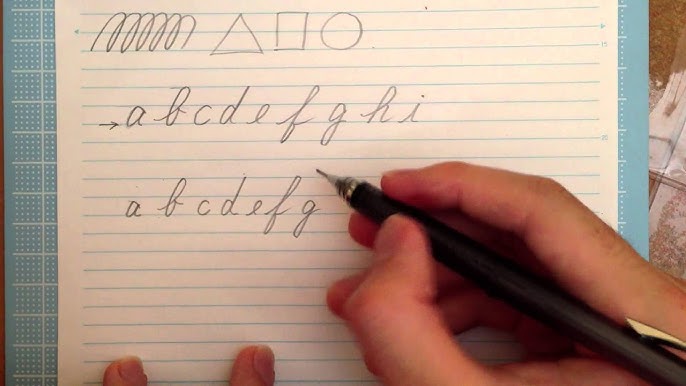 → a b c d e f g h i
a b c d e f g